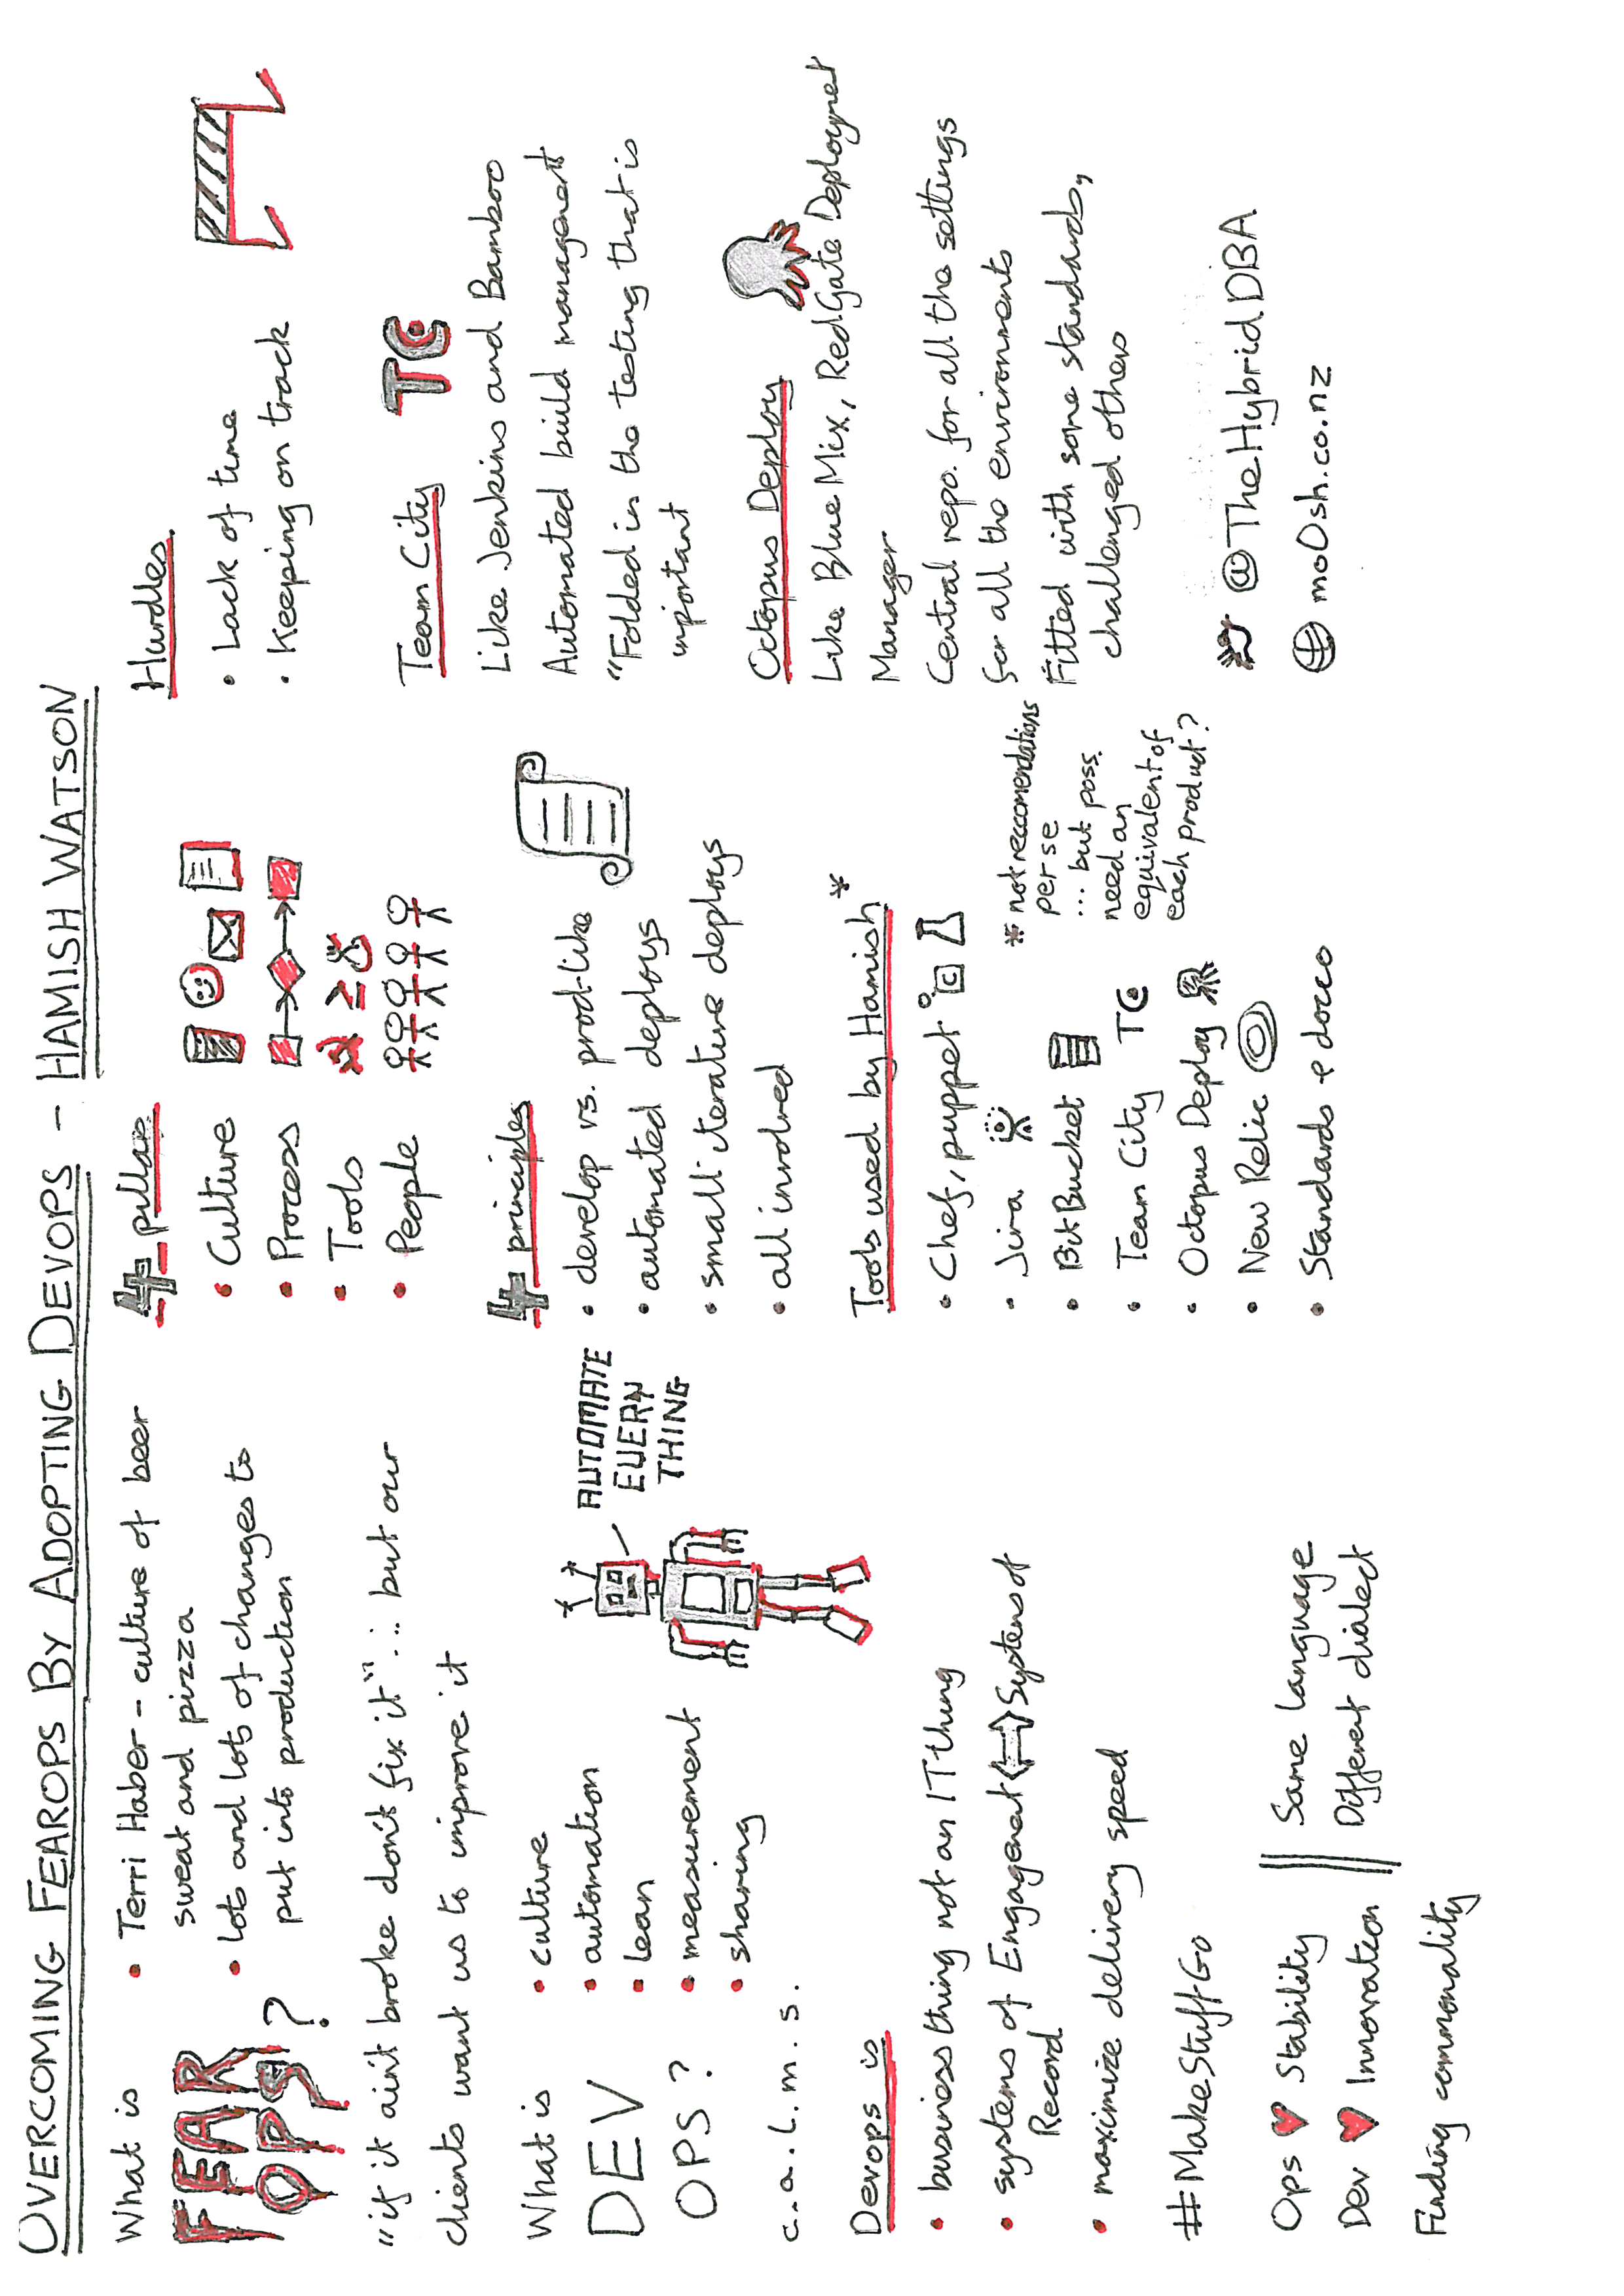 OVERCOMING FEAROPS BY ADOPTING DEVOPS - HAMISH WATSON
What is
FEAR
OPS?
• Terri Haber - culture of beer
sweat and pizza
• lots and lots of changes to
put into production
"if it ain't broke don't fix it" ∴ but our
clients want us to improve it
What is
DEV
OPS?
• culture
• automation
• lean
• measurement
• sharing
c.a.l.m.s.
AUTOMATE
EVERY
THING
Devops is
• business thing not an IT thing
• systems of Engagement ⟺ Systems of
Record
• maximize delivery speed
#MakeStuffGo
Ops ♥ Stability
Dev ♥ Innovation
Same language
Different dialect
Finding commonality
4 pillars
• Culture
• Process
• Tools
• People
4 principles
• develop vs. prod-like
• automated deploys
• small iterature deploys
• all involved
Tools used by Hamish*
• Chef, puppet
C
• Jira
• BitBucket
• Team City TC
• Octopus Deploy
• New Relic
• Standards & docco
* not reccomendations
per se
... but poss.
need an
equivalent of
each product?
Hurdles
• Lack of time
• Keeping on track
Team City TC
Like Jenkins and Bamboo
Automated build management
"Folded in the testing that is
important
Octopus Deploy
Like BlueMix, RedGate Deployment
Manager
Central repo. for all the settings
for all the environments
Fitted with some standards,
challenged others
@TheHybridDBA
mo0sh.co.nz